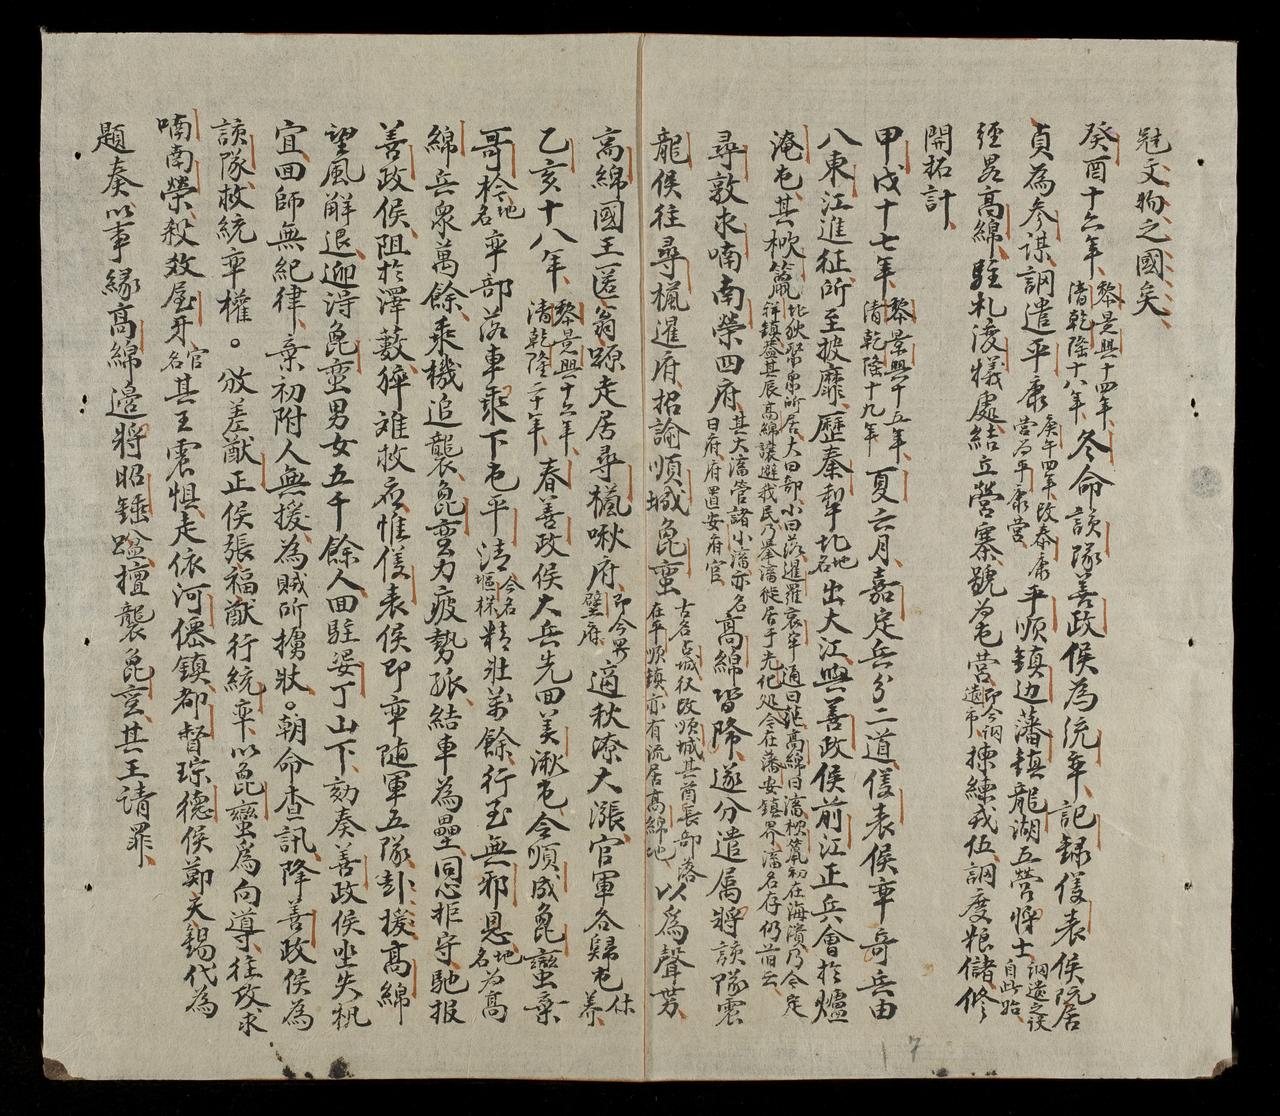 冠文物之國矣
癸酉十六年黎景興十四年清乾隆十八年冬命該隊善政侯為統率記錄儀表侯阮居
貞為參謀調遣平康庚午四年改泰康營為平康營平順鎮边藩鎮龍湖五營將士調遣之役自此始
徑畧高綿駐札淩犠處結立營寨號為屯營即今調遣市揀練戎伍調度粮儲修
開拓計
甲戌十七年黎景興十五年清乾隆十九年夏六月嘉定兵分二道儀表侯率奇兵由
八東江進征所至披靡歷秦犁圠地名出大江與善政侯前江正兵會於爐
淹屯其楸䈬
尋敦求喃南榮四府其大藩管諸小藩亦名曰府府置安府官高綿皆降遂分遣属將該隊雲
龍侯往尋楓暹府招諭順城毘蛮古名占城後改順城其酋長部落在平順鎮亦有流居高綿地以為聲势
高綿國王匿翁㖼走居尋楓啾府即今㗂壁府適秋潦大漲官軍各歸屯休养
乙亥十八年黎景興十六年清乾隆二十年春善政侯大兵先回美湫屯令順成毘蠻棄
哥㭲地名率部落車乘下屯平清今名塸椕精壯萬餘行至無邪恩地名为高
綿兵眾萬餘乘機追襲毘蛮力疲勢孤結車為壘同心柜守馳报
善政侯阻於澤藪猝难救应惟儀表侯即率随軍五隊赴援高綿
望風觧退迎淂毘蛮男女五千餘人回駐婆丁山下劾奏善政侯坐失机
宜回師無紀律棄初附人無援為賊所擄狀。朝命查訊降善政侯為
該隊救統率權。攽差猷正侯張福猷行統率以毘蠻為向導往攻求
喃南榮殺效屋牙官名其王震懼走依河僊鎮都督琮德侯鄭天錫代為
題奏以事緣高綿邉將昭錘𨅖擅襲毘蛮其王請罪
7